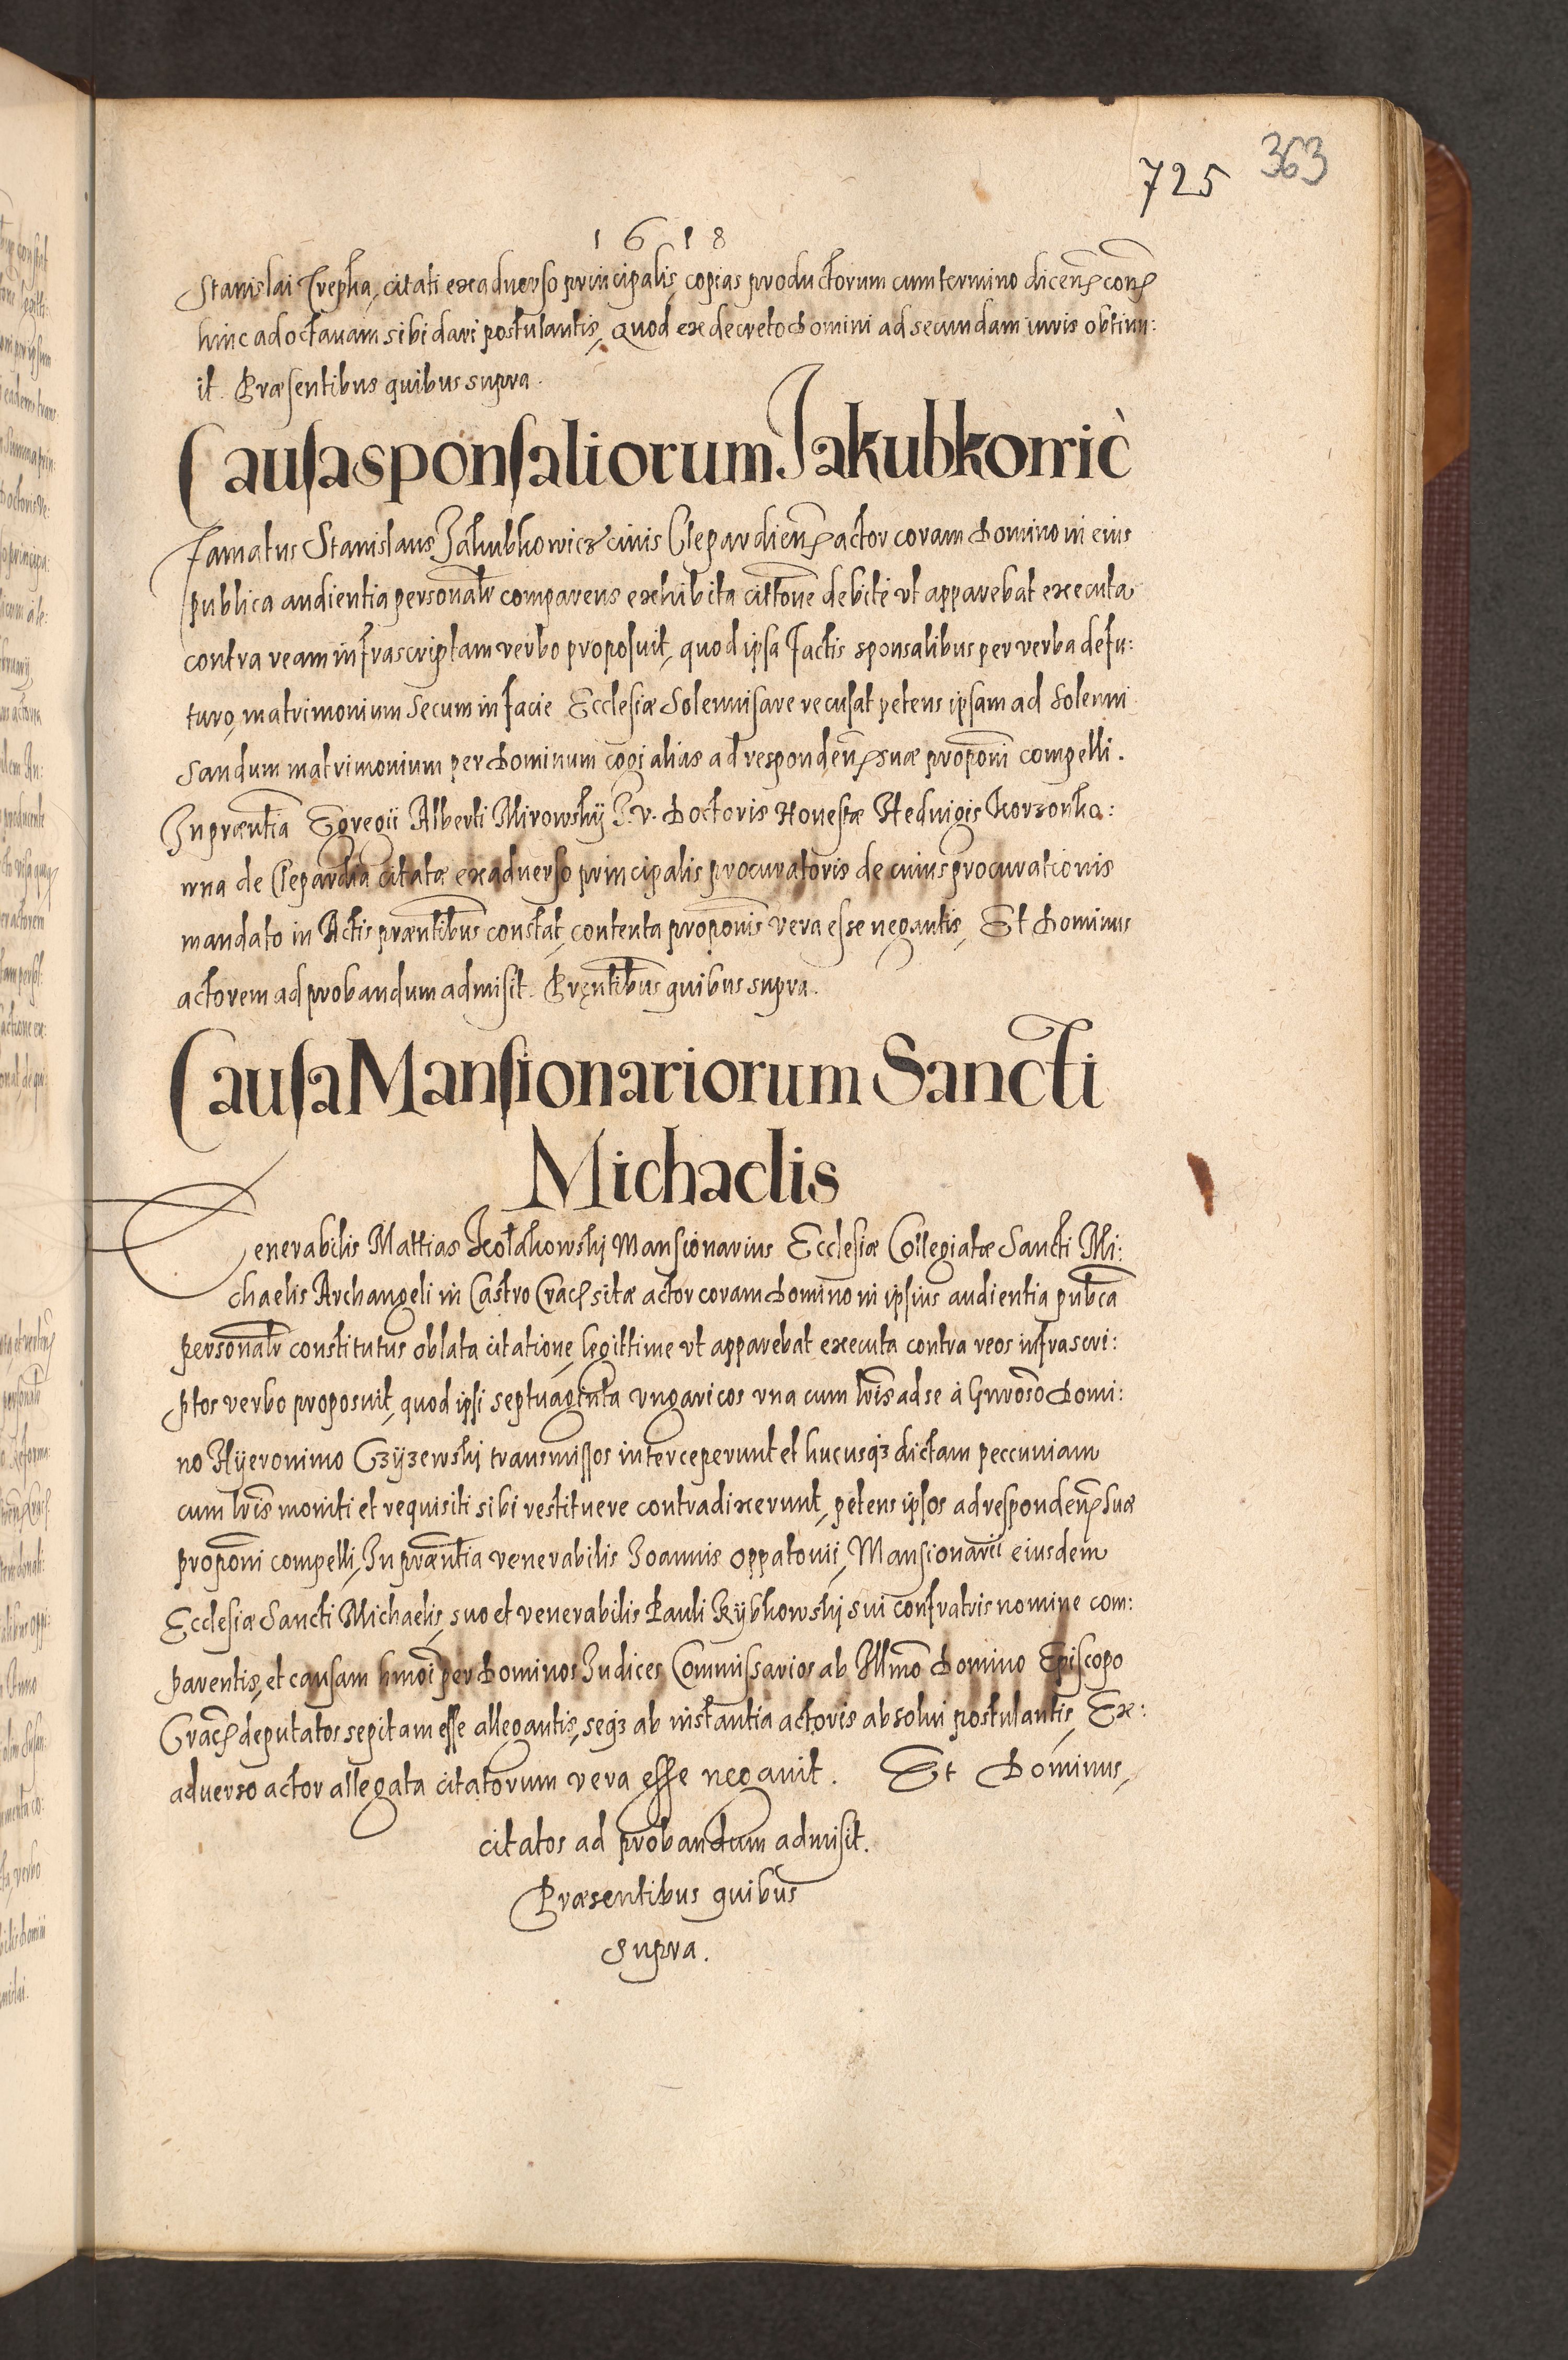 363
725
1618
Stanislai Trepka, citati ex aduerso principalis, copias productorum cum termino dicen̄ con̄
hinc ad octauam sibi dari postulantis, Quod ex decreto Domini ad secundam iuris obtinu:
it. Præsentibus quibus supra.
Causa sponsaliorum Jakubkowic
Famatus Stanislaus Jakubkowicz ciuis Clepardien̄ actor coram Domino in eius
publica audientia personalr̄ comparens exhibita cittōne debite vt apparebat executa
contra ream infrascriptam verbo proposuit, quod ipsa factis sponsalibus per verba de fu:
turo, matrimonium secum in facie Ecclesiæ Solennisare recusat petens ipsam ad Solenni
sandum matrimonium per Dominum cogi alias ad responden̄ suæ propōni compelli.
In præntia Egregii Alberti Mirowskij J. v. Doctoris Honestæ Heduigis Korzonko:
wna de Clepardia citatæ ex aduerso principalis procuratoris de cuius procurationis
mandato in Actis præntibus constat, contenta propōnis vera esse negantis, Et Dominus
actorem ad probandum admisit. Prȩntibus quibus supra.
Causa Mansionariorum Sancti
Michaelis
Venerabilis Mattias Kołakowski Mansionarius Ecclesiæ Collegiatæ Sancti Mi:
chaelis Archangeli in Castro Crac̄ sitæ actor coram Domino in ipsius audientia pub̄ca
personalr̄ constitutus oblata citatione, legittime vt apparebat executa contra reos infrascri:
ptos verbo proposuit, quod ipsi septuaginta vngaricos vna cum lr̄is ad se à Gnrōso Domi:
no Hyeronimo Czyzewski transmissos interceperunt et hucusqȝ dictam peccuniam
cum lr̄is moniti et requisiti sibi restituere contradixerunt, petens ipsos ad responden̄ suæ
propōni compelli, In præntia venerabilis Joannis Oppatouii, Mansionarii eiusdem
Ecclesiæ Sancti Michaelis, suo et venerabilis Pauli Rybkowski sui confratris nomine com:
parentis, et causam hmōi per Dominos Judices Commissarios ab Illmo Domino Episcopo
Crac̄ deputatos sepitam esse allegantis, seqȝ ab instantia actoris absolui postulantis, Ex:
aduerso actor allegata citatorum vera esse negauit. Et Dominus,
citatos ad probandum admisit.
Præsentibus quibus
supra.